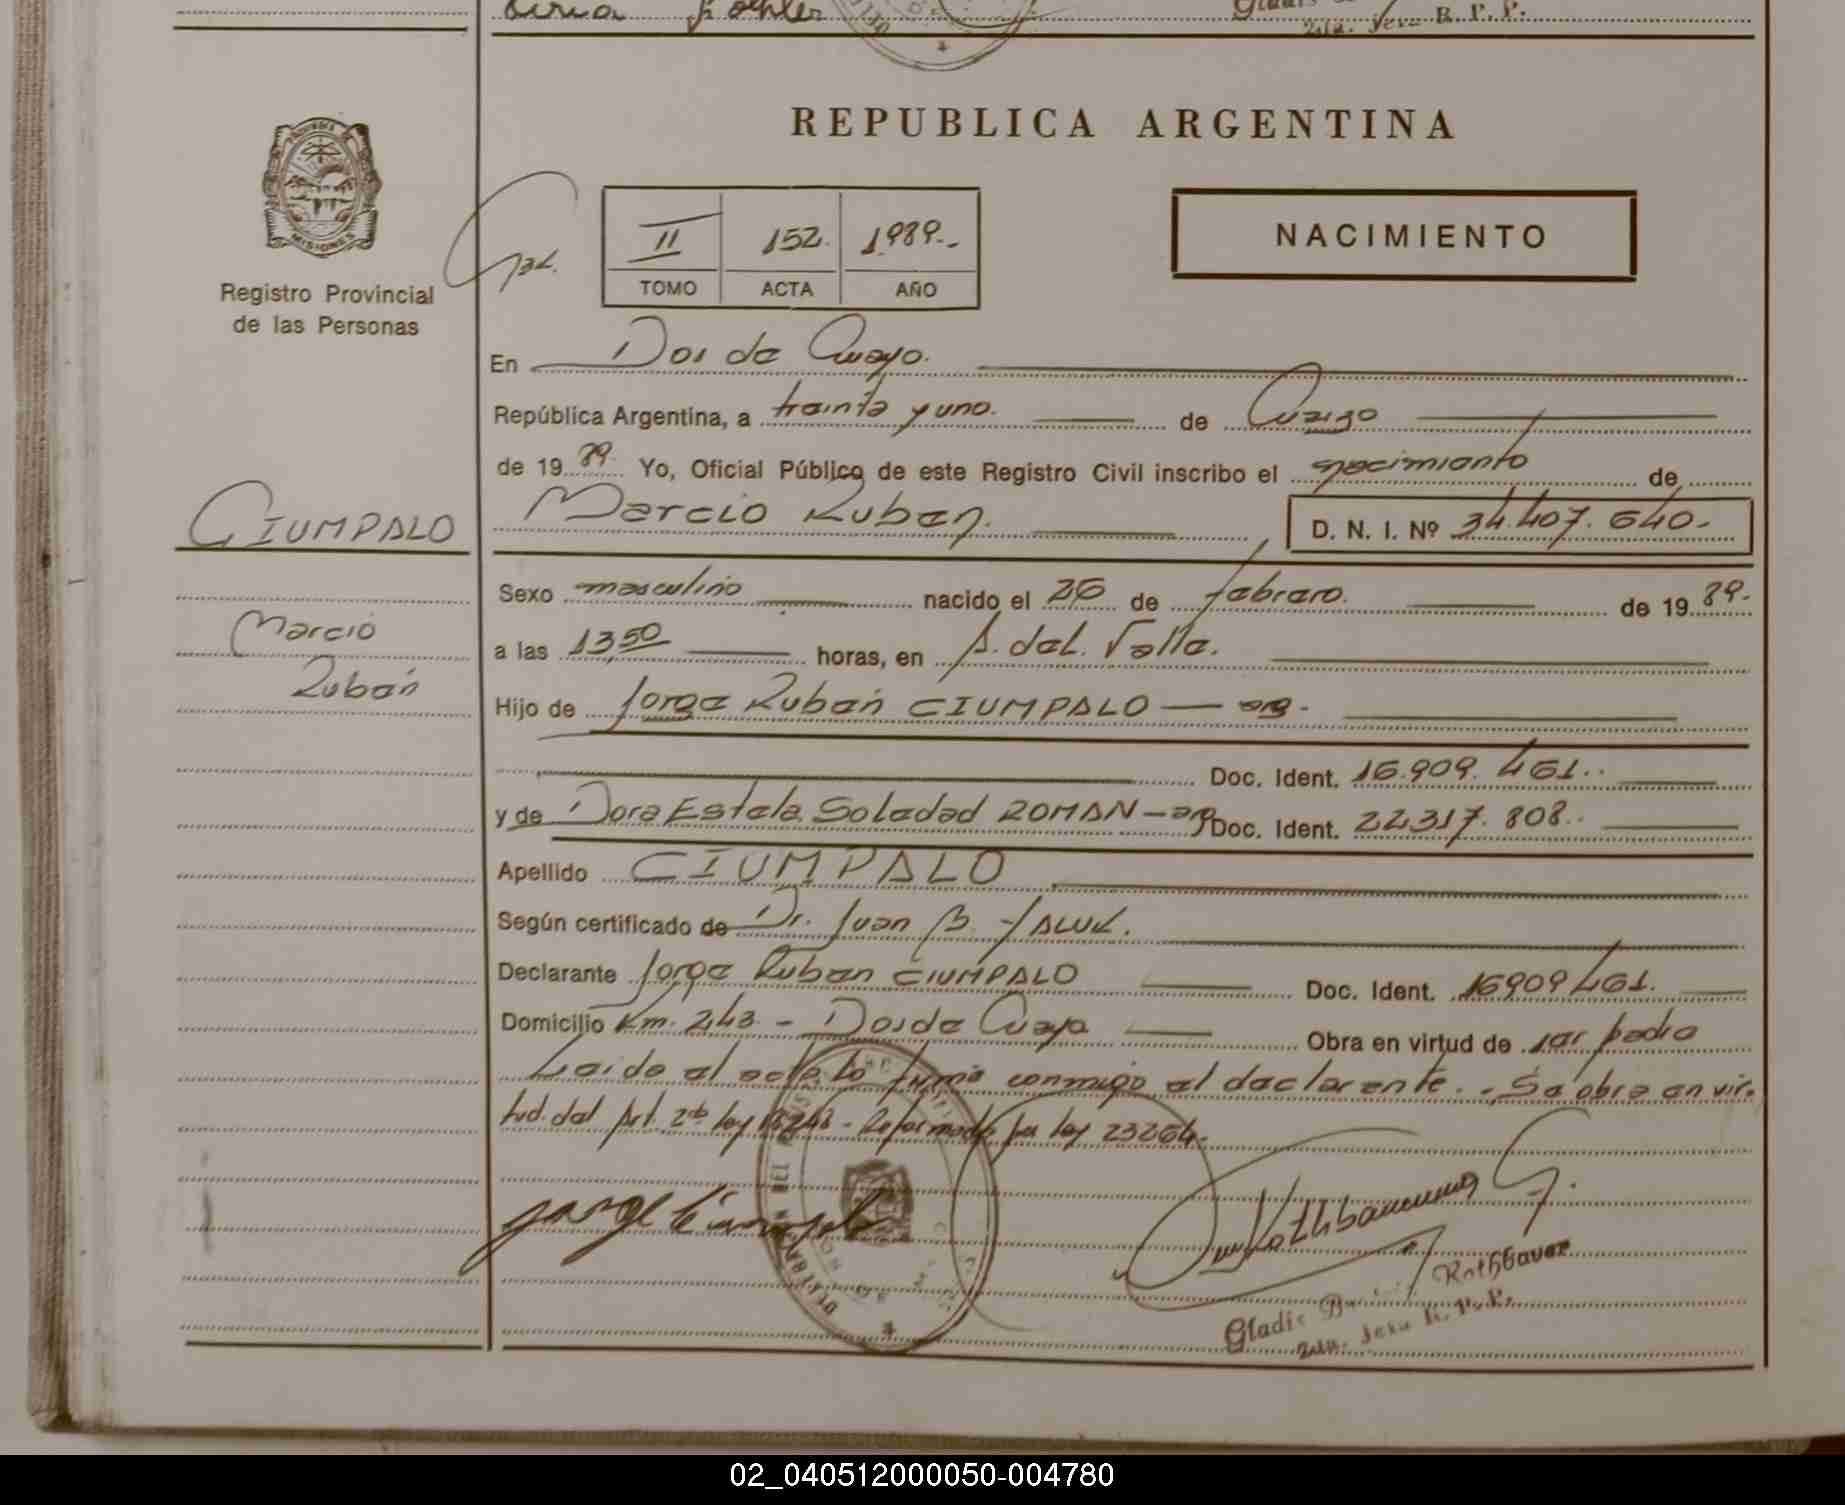 REPUBLICA ARGENTINA
MISIONES
Registro Provincial
de las Personas
II 152. 1989.-
TOMO ACTA AÑO
NACIMIENTO
En Dos de Mayo.
República Argentina, a treinta y uno. de Marzo
de 1989. Yo, Oficial Público de este Registro Civil inscribo el nacimiento de
CIUMPALO
Marcio Ruben. D. N. I. Nº 34.407.640.-
Sexo masculino nacido el 26 de febrero. de 1989.-
Marcio
Rubén
a las 13,50 horas, en A. del Valle.
Hijo de Jorge Rubén CIUMPALO — arg.-
Doc. Ident. 16.909.461..
y de Dora Estela Soledad ROMAN — arg Doc. Ident. 22317.808..
Apellido CIUMPALO
Según certificado de Dr. Juan B.
Declarante Jorge Ruben CIUMPALO Doc. Ident. 16909461.
Domicilio Km. 243 - Dos de Mayo Obra en virtud de ser padre
Leído el acta lo firma conmigo el declarante. - Se obra en vir-
tud. del Art. 2do ley 18248 - Reformado por ley 23264.-
Jorge Ciumpalo
Gladis Rothbauer
Jefa R. P. P.
02_040512000050-004780